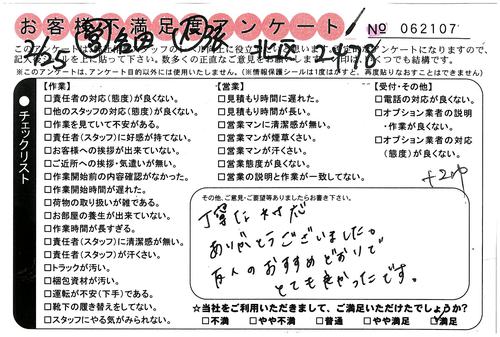 お客様不満足度アンケート
No 062107
2/25
北区 2478
このアンケートは
記入後シールを上に貼って下さい。数多くの正直なご意見をお願い
いくつでも結構です。
(※このアンケートは、アンケート目的以外には使用いたしません。)(※情報保護シールは1度はがすと、再度貼りなおすことはできません)
チェックリスト
【作業】
□責任者の対応(態度)が良くない。
□他のスタッフの対応(態度)が良くない。
□作業を見ていて不安がある。
□責任者(スタッフ)に好感が持てない。
□お客様への挨拶が出来ていない。
□ご近所への挨拶・気遣いが無い。
□作業開始前の内容確認がなかった。
□作業開始時間が遅れた。
□荷物の取り扱いが雑である。
□お部屋の養生が出来ていない。
□作業時間が長すぎる。
□責任者(スタッフ)に清潔感が無い。
□責任者(スタッフ)が汗くさい。
□トラックが汚い。
□梱包資材が汚い。
□運転が不安(下手)である。
□靴下の履き替えをしてない。
□スタッフにやる気がみられない。
【営業】
□見積もり時間に遅れた。
□見積もり時間が長い。
□営業マンに清潔感が無い。
□営業マンが煙草くさい。
□営業マンが汗くさい。
□営業態度が良くない。
□営業の説明と作業が一致してない。
【受付・その他】
□電話の対応が良くない。
□オプション業者の説明
・作業が良くない。
□オプション業者の対応
(態度)が良くない。
その他、ご意見・ご要望等ありましたらお書き下さい。
丁寧な対応
ありがとうございました。
友人のおすすめどおりで
とても良かったです。
☆当社をご利用いただきまして、ご満足いただけたでしょうか?
□不満 □やや不満 □普通 □やや満足 ☑満足